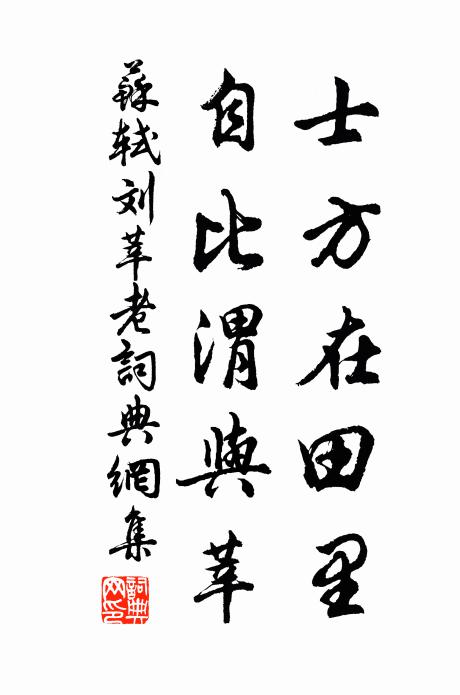 士方在田里
自比渭與莘
蘇軾刘莘老詞典網集
詞典网印